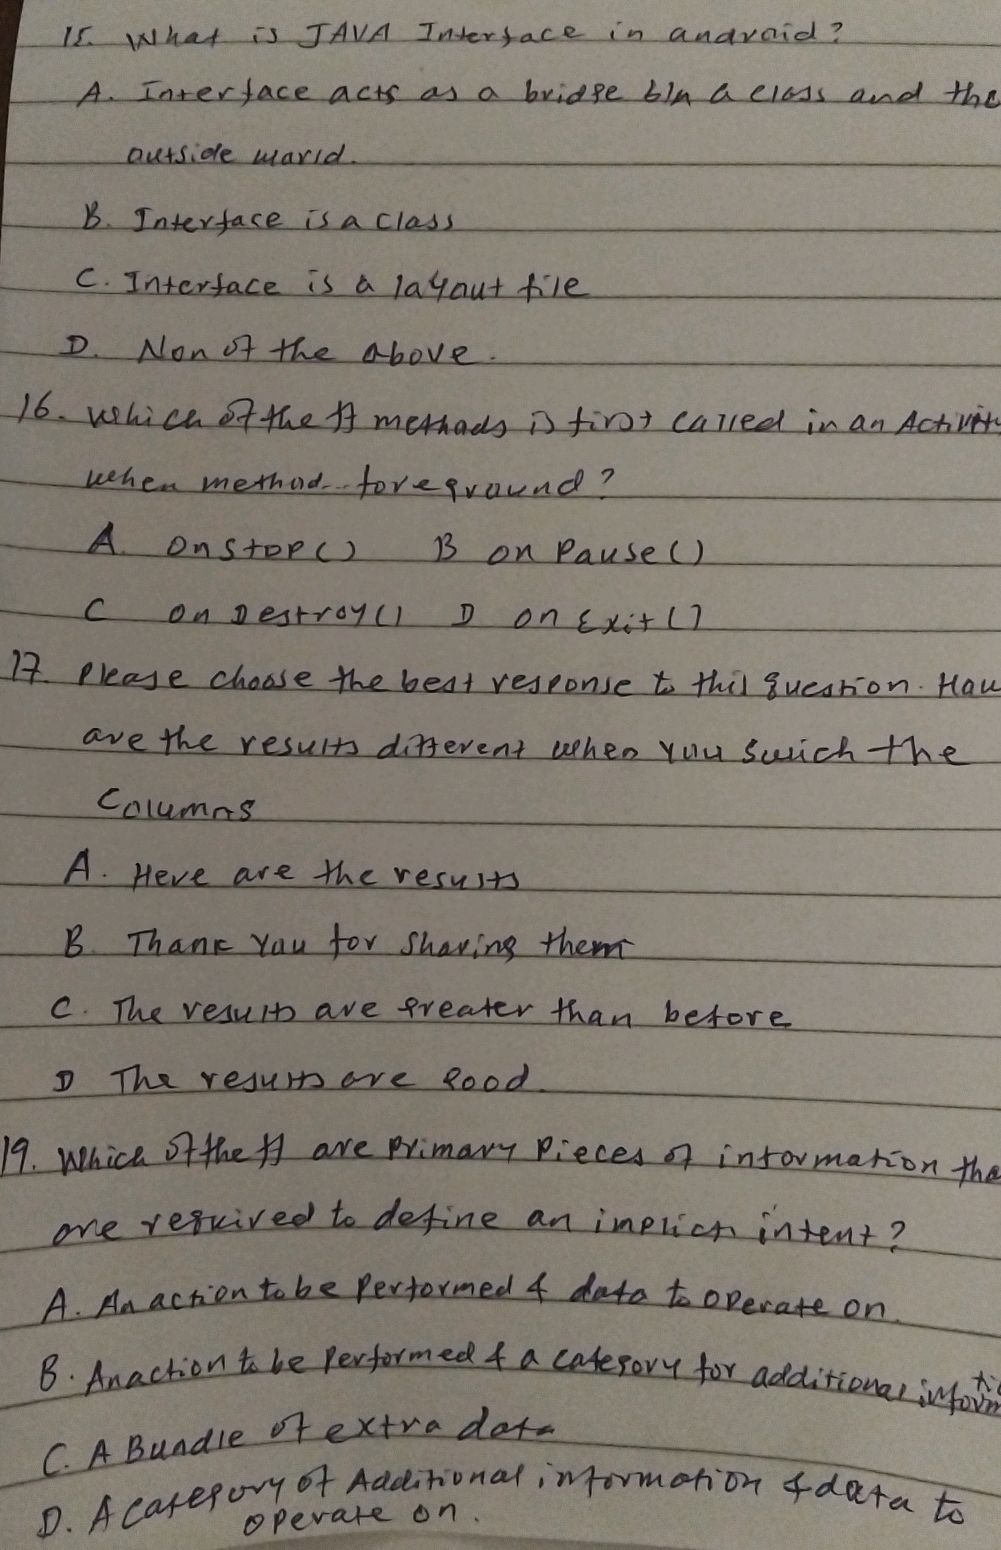 15. What is JAVA Interface in android?
A. Interface acts as a bridge b/n a class and the
outside world.
B. Interface is a class
C. Interface is a layout file
D. Non of the above.
16. which of the ff methods is first called in an Activity
when method.. foreground?
A. OnStop() B on Pause()
C On Destroy() D on Exit()
17. Please choose the best response to this question. How
are the results different when you swich the
Columns
A. Here are the results
B. Thank You for Sharing them
C. The results are greater than before
D The results are good.
19. Which of the ff are primary pieces of information tha
are required to define an implicit intent?
A. An action to be performed & data to operate on.
B. An action to be performed & a category for additional information
C. A Bundle of extra data
D. A category of Additional information & data to
operate on.